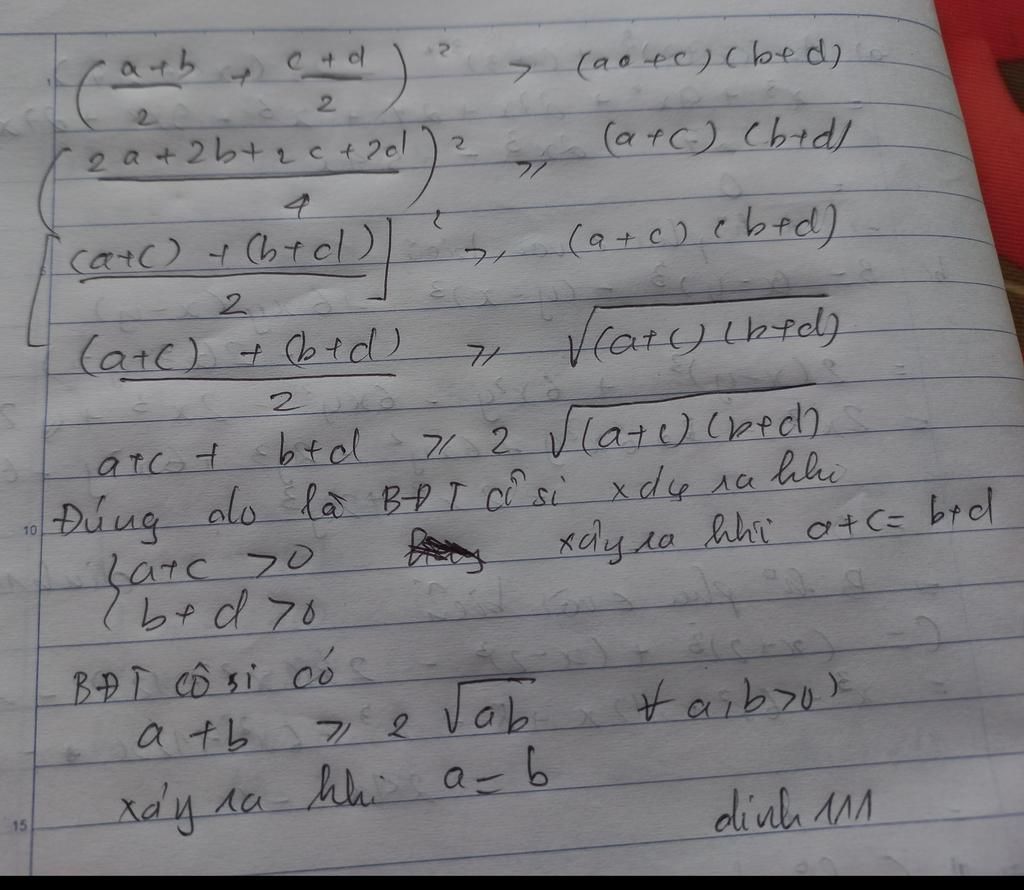 (a+b/2 + c+d/2)² ≥ (a+c)(b+d)
(2a+2b+2c+2d/4)² ≥ (a+c)(b+d)
[(a+c) + (b+d)/2]² ≥ (a+c)(b+d)
(a+c) + (b+d)/2 ≥ √(a+c)(b+d)
a+c + b+d ≥ 2 √(a+c)(b+d)
10 Đúng do là BĐT cô si xảy ra khi
{a+c >0 xảy ra khi a+c = b+d
{b+d >0
BĐT cô si có
a+b ≥ 2 √ab ∀ a,b>0
xảy ra khi a=b
15 dinh 111